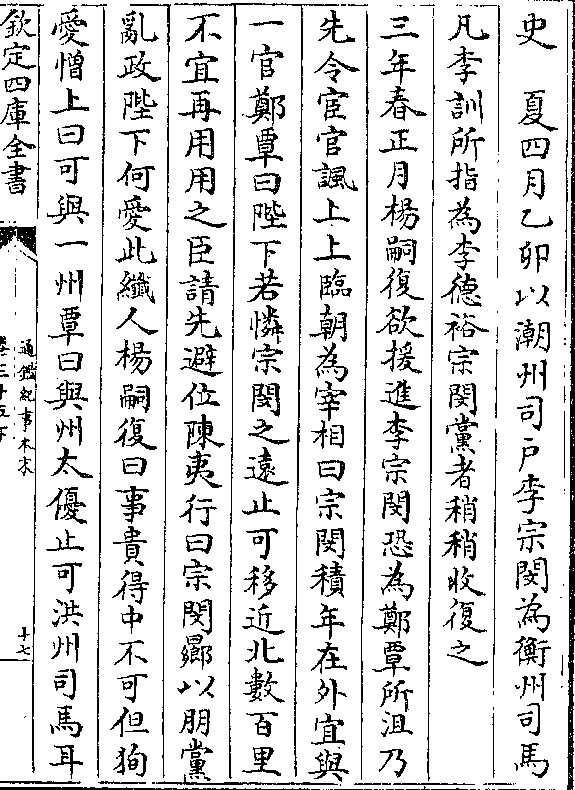 史　夏四月乙卯以潮州司戸李宗閔為衡州司馬
凡李訓所指為李德裕宗閔黨者稍稍收復之
三年春正月楊嗣復欲援進李宗閔恐為鄭覃所沮乃
先令宦官諷上上臨朝為宰相曰宗閔積年在外宜與
一官鄭覃曰陛下若憐宗閔之遠止可移近北數百里
不宜再用用之臣請先避位陳夷行曰宗閔曏以朋黨
亂政陛下何愛此纖人楊嗣復曰事貴得中不可但狥
愛憎上曰可與一州覃曰與州太優止可洪州司馬耳
欽定四庫全書
通鑑紀事本末
卷三十五下